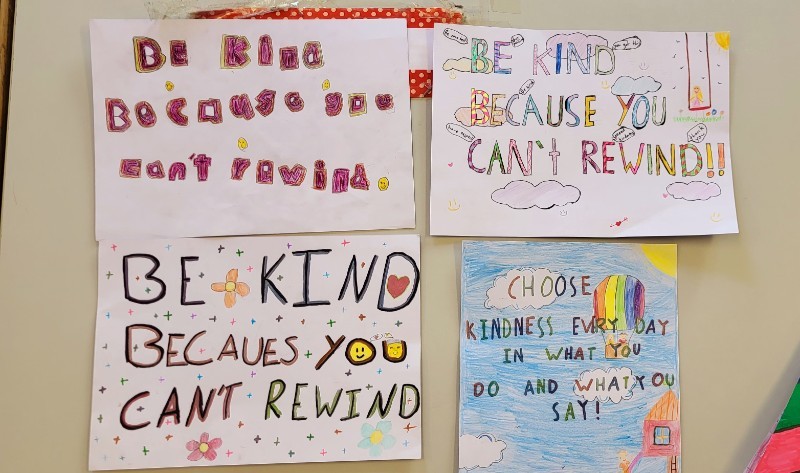 Be Kind
Because you
can't rewind.
BE KIND
BECAUSE YOU
CAN'T REWIND!!
BE KIND
BECAUES YOU
CAN'T REWIND
CHOOSE
KINDNESS EVRY DAY
IN WHAT YOU
DO AND WHAT YOU
SAY!